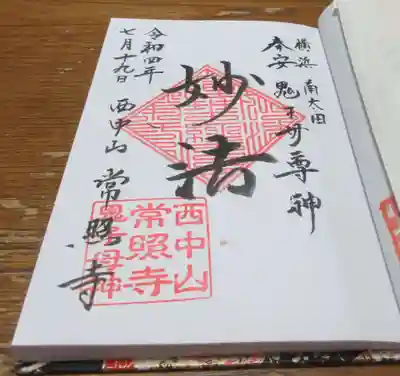 横浜 南太田
奉安 鬼子母尊神
妙法
令和四年
七月十九日
西中山 常照寺
西中山
常照寺
鬼子母神